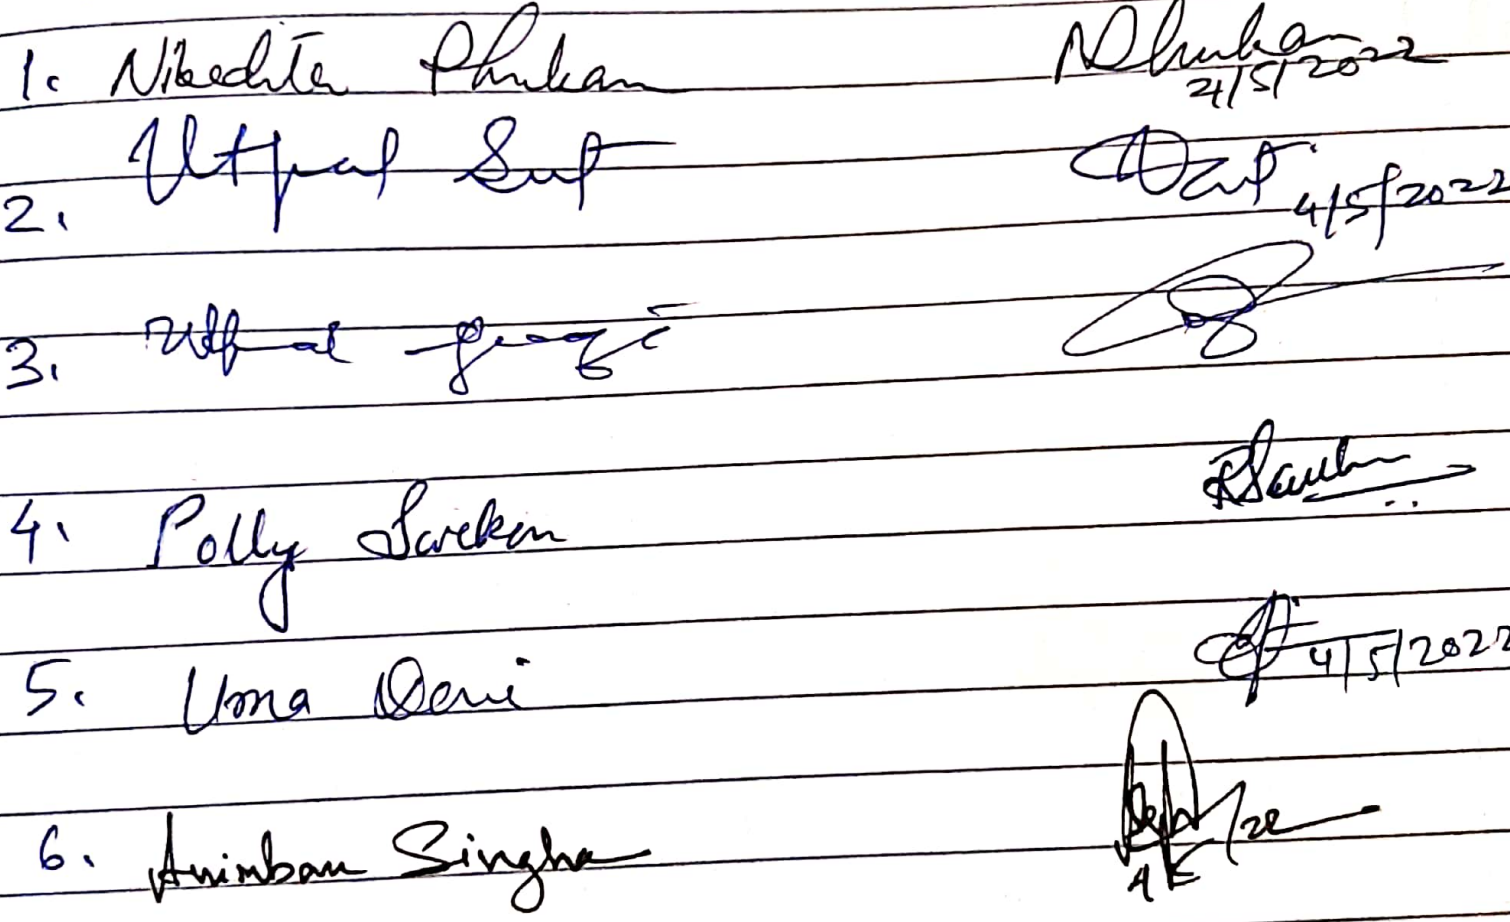 1. Nibedita Phukan NPhukan
4/5/2022
2. Utpal Sut USut 4/5/2022
3. Utpal Gogoi
4. Polly Sarekar PSarekar
5. Uma Devi 4/5/2022
6. Anirban Singha